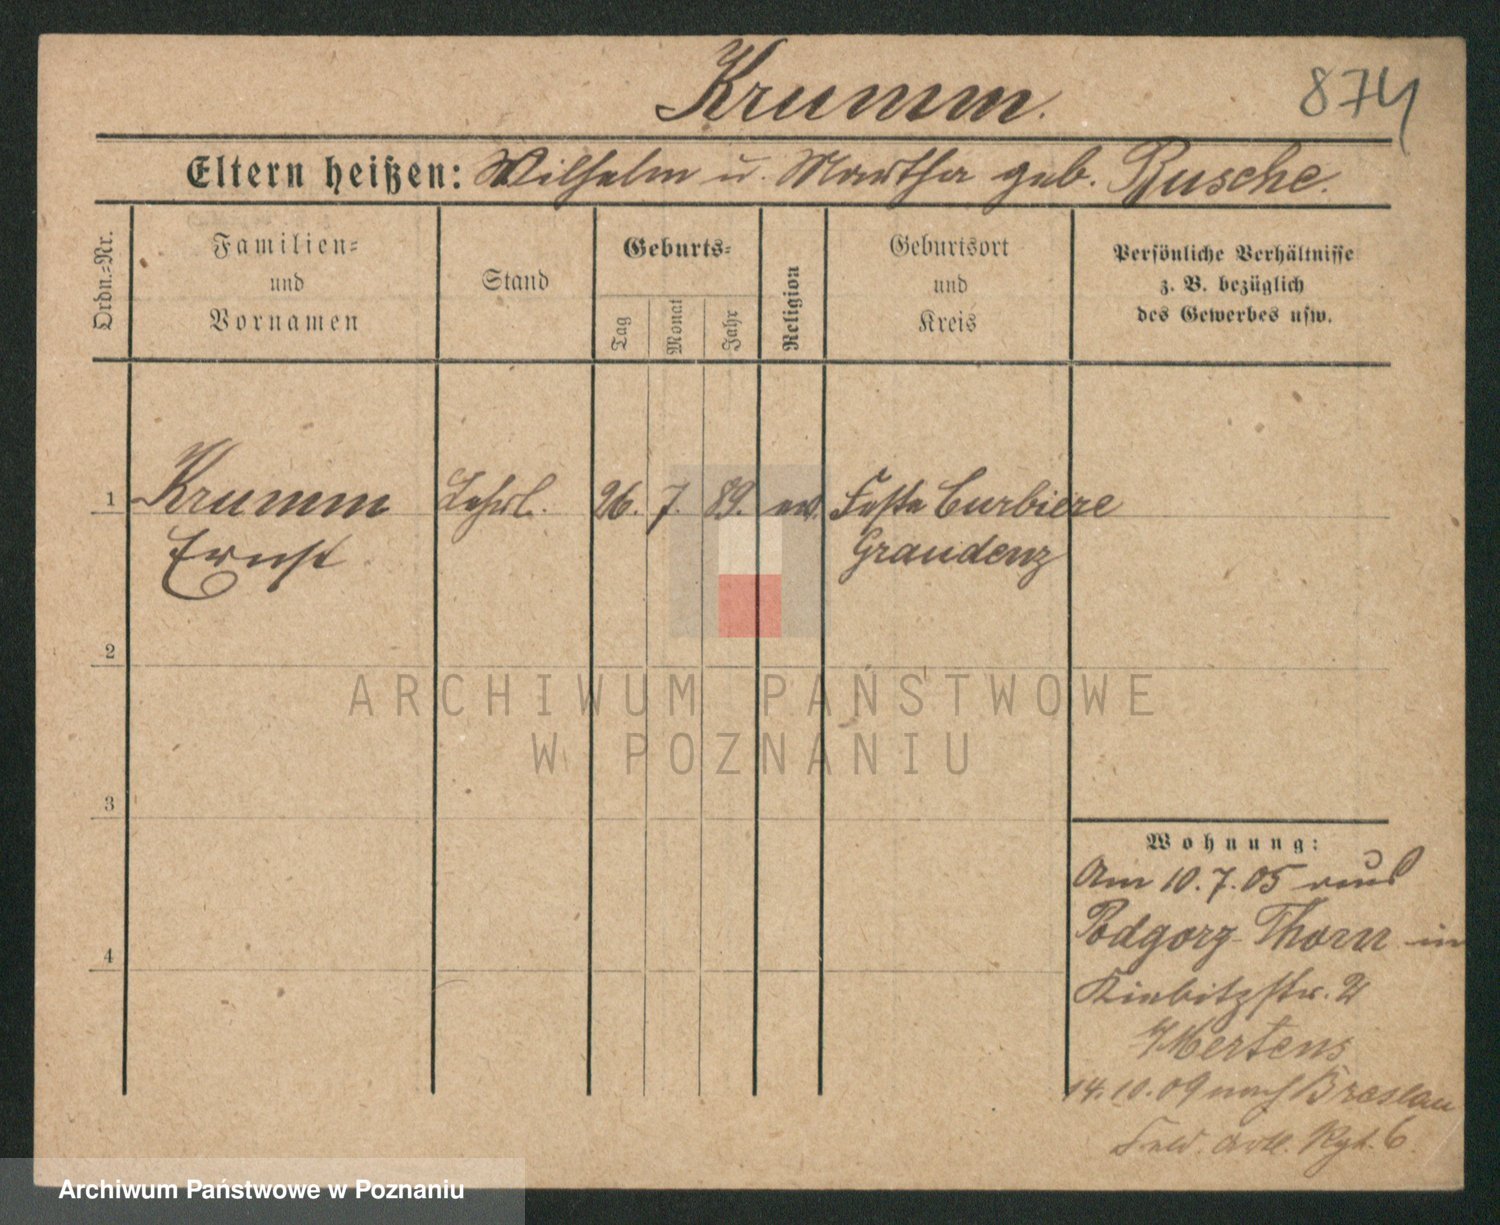 Krumm.
874
Eltern heißen: Wilhelm u. Martha geb. Busche.
Ordn.=Nr.
Familien=
und
Vornamen
Stand
Geburts=
Tag
Monat
Jahr
Religion
Geburtsort
und
Kreis
Persönliche Verhältnisse
z. B. bezüglich
des Gewerbes usw.
1 Krumm Lehrl. 26. 7. 89. ev. Feste Curbiere
Ernst Graudenz
2
ARCHIWUM PAŃSTWOWE
W POZNANIU
3
Wohnung:
Am 10.7.05 aus
Podgorz-Thorn in
4
Kiebitzstr. 2
Mertens
14.10.09 nach Breslau
Feld. Artl. Rgt. 6.
Archiwum Państwowe w Poznaniu